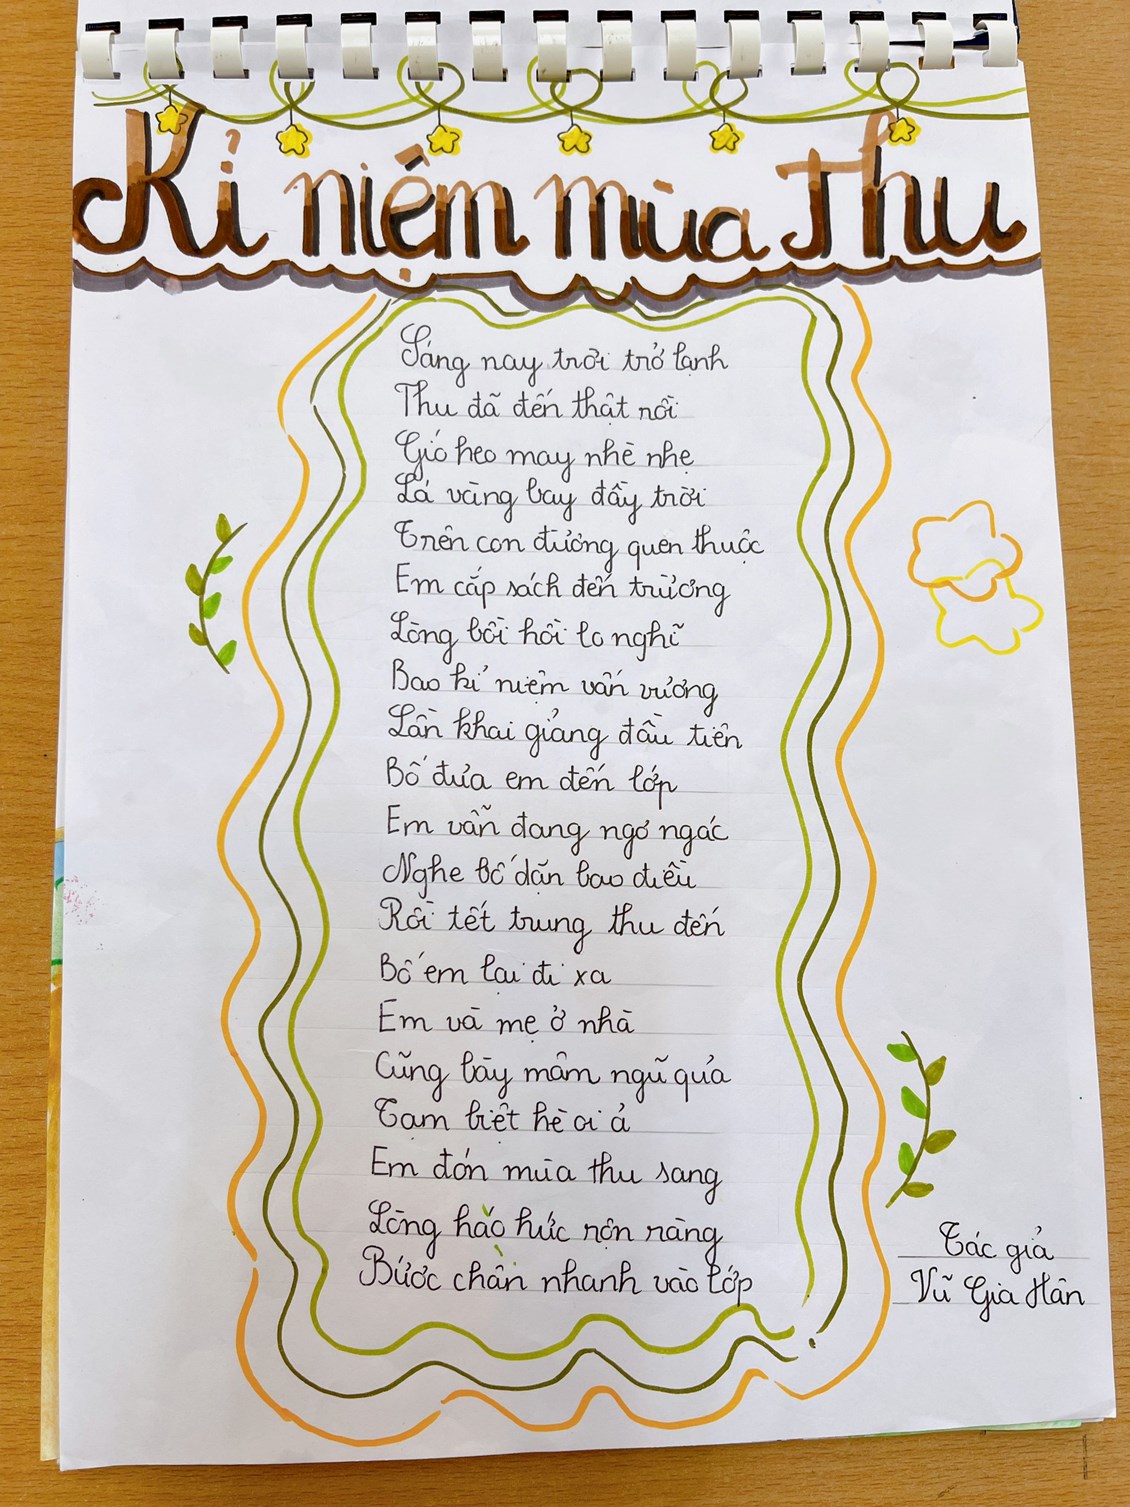 Kỉ niệm mùa thu
Sáng nay trời trở lạnh
Thu đã đến thật rồi
Gió heo may nhè nhẹ
Lá vàng bay đầy trời
Trên con đường quen thuộc
Em cắp sách đến trường
Lòng bồi hồi lo nghĩ
Bao kỉ niệm vấn vương
Lần khai giảng đầu tiên
Bố đưa em đến lớp
Em vẫn đang ngơ ngác
Nghe bố dặn bao điều
Rồi tết trung thu đến
Bố em lại đi xa
Em và mẹ ở nhà
Cũng bày mâm ngũ quả
Tạm biệt hè oi ả
Em đón mùa thu sang
Lòng háo hức rộn ràng
Bước chân nhanh vào lớp
Tác giả
Vũ Gia Hân